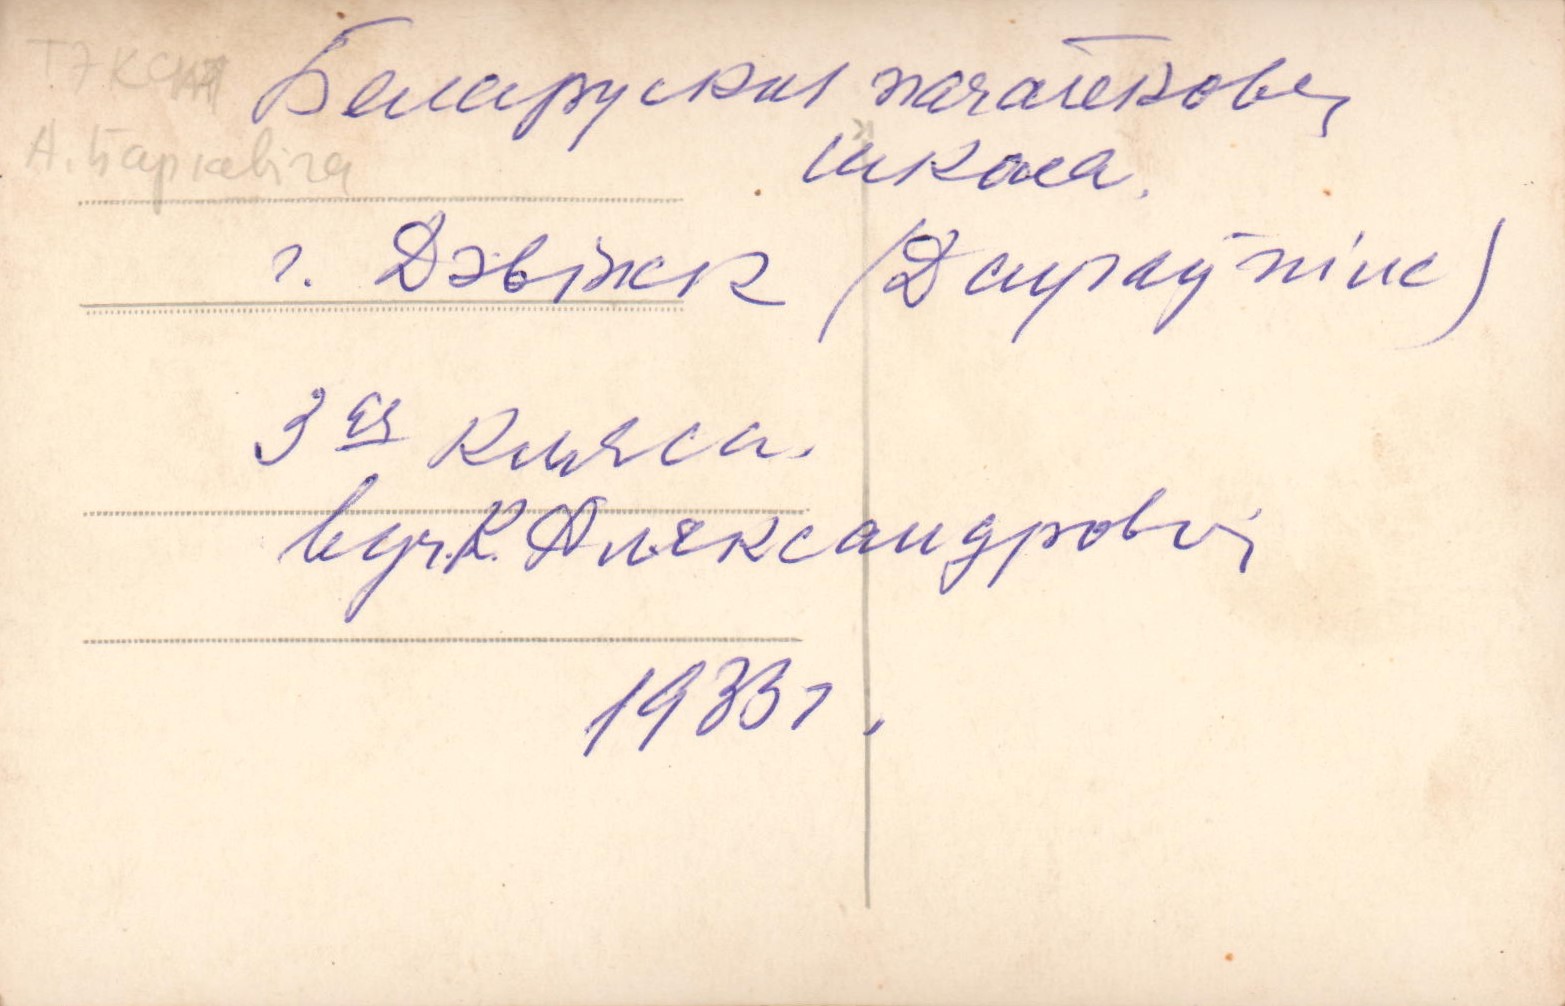 Тэкст
А. Баркевіча
Беларуская пачатковая
школа.
г. Дзвінск (Даугаўпілс)
3ая кляса.
вуч. К. Аляксандровіч
1933 г.